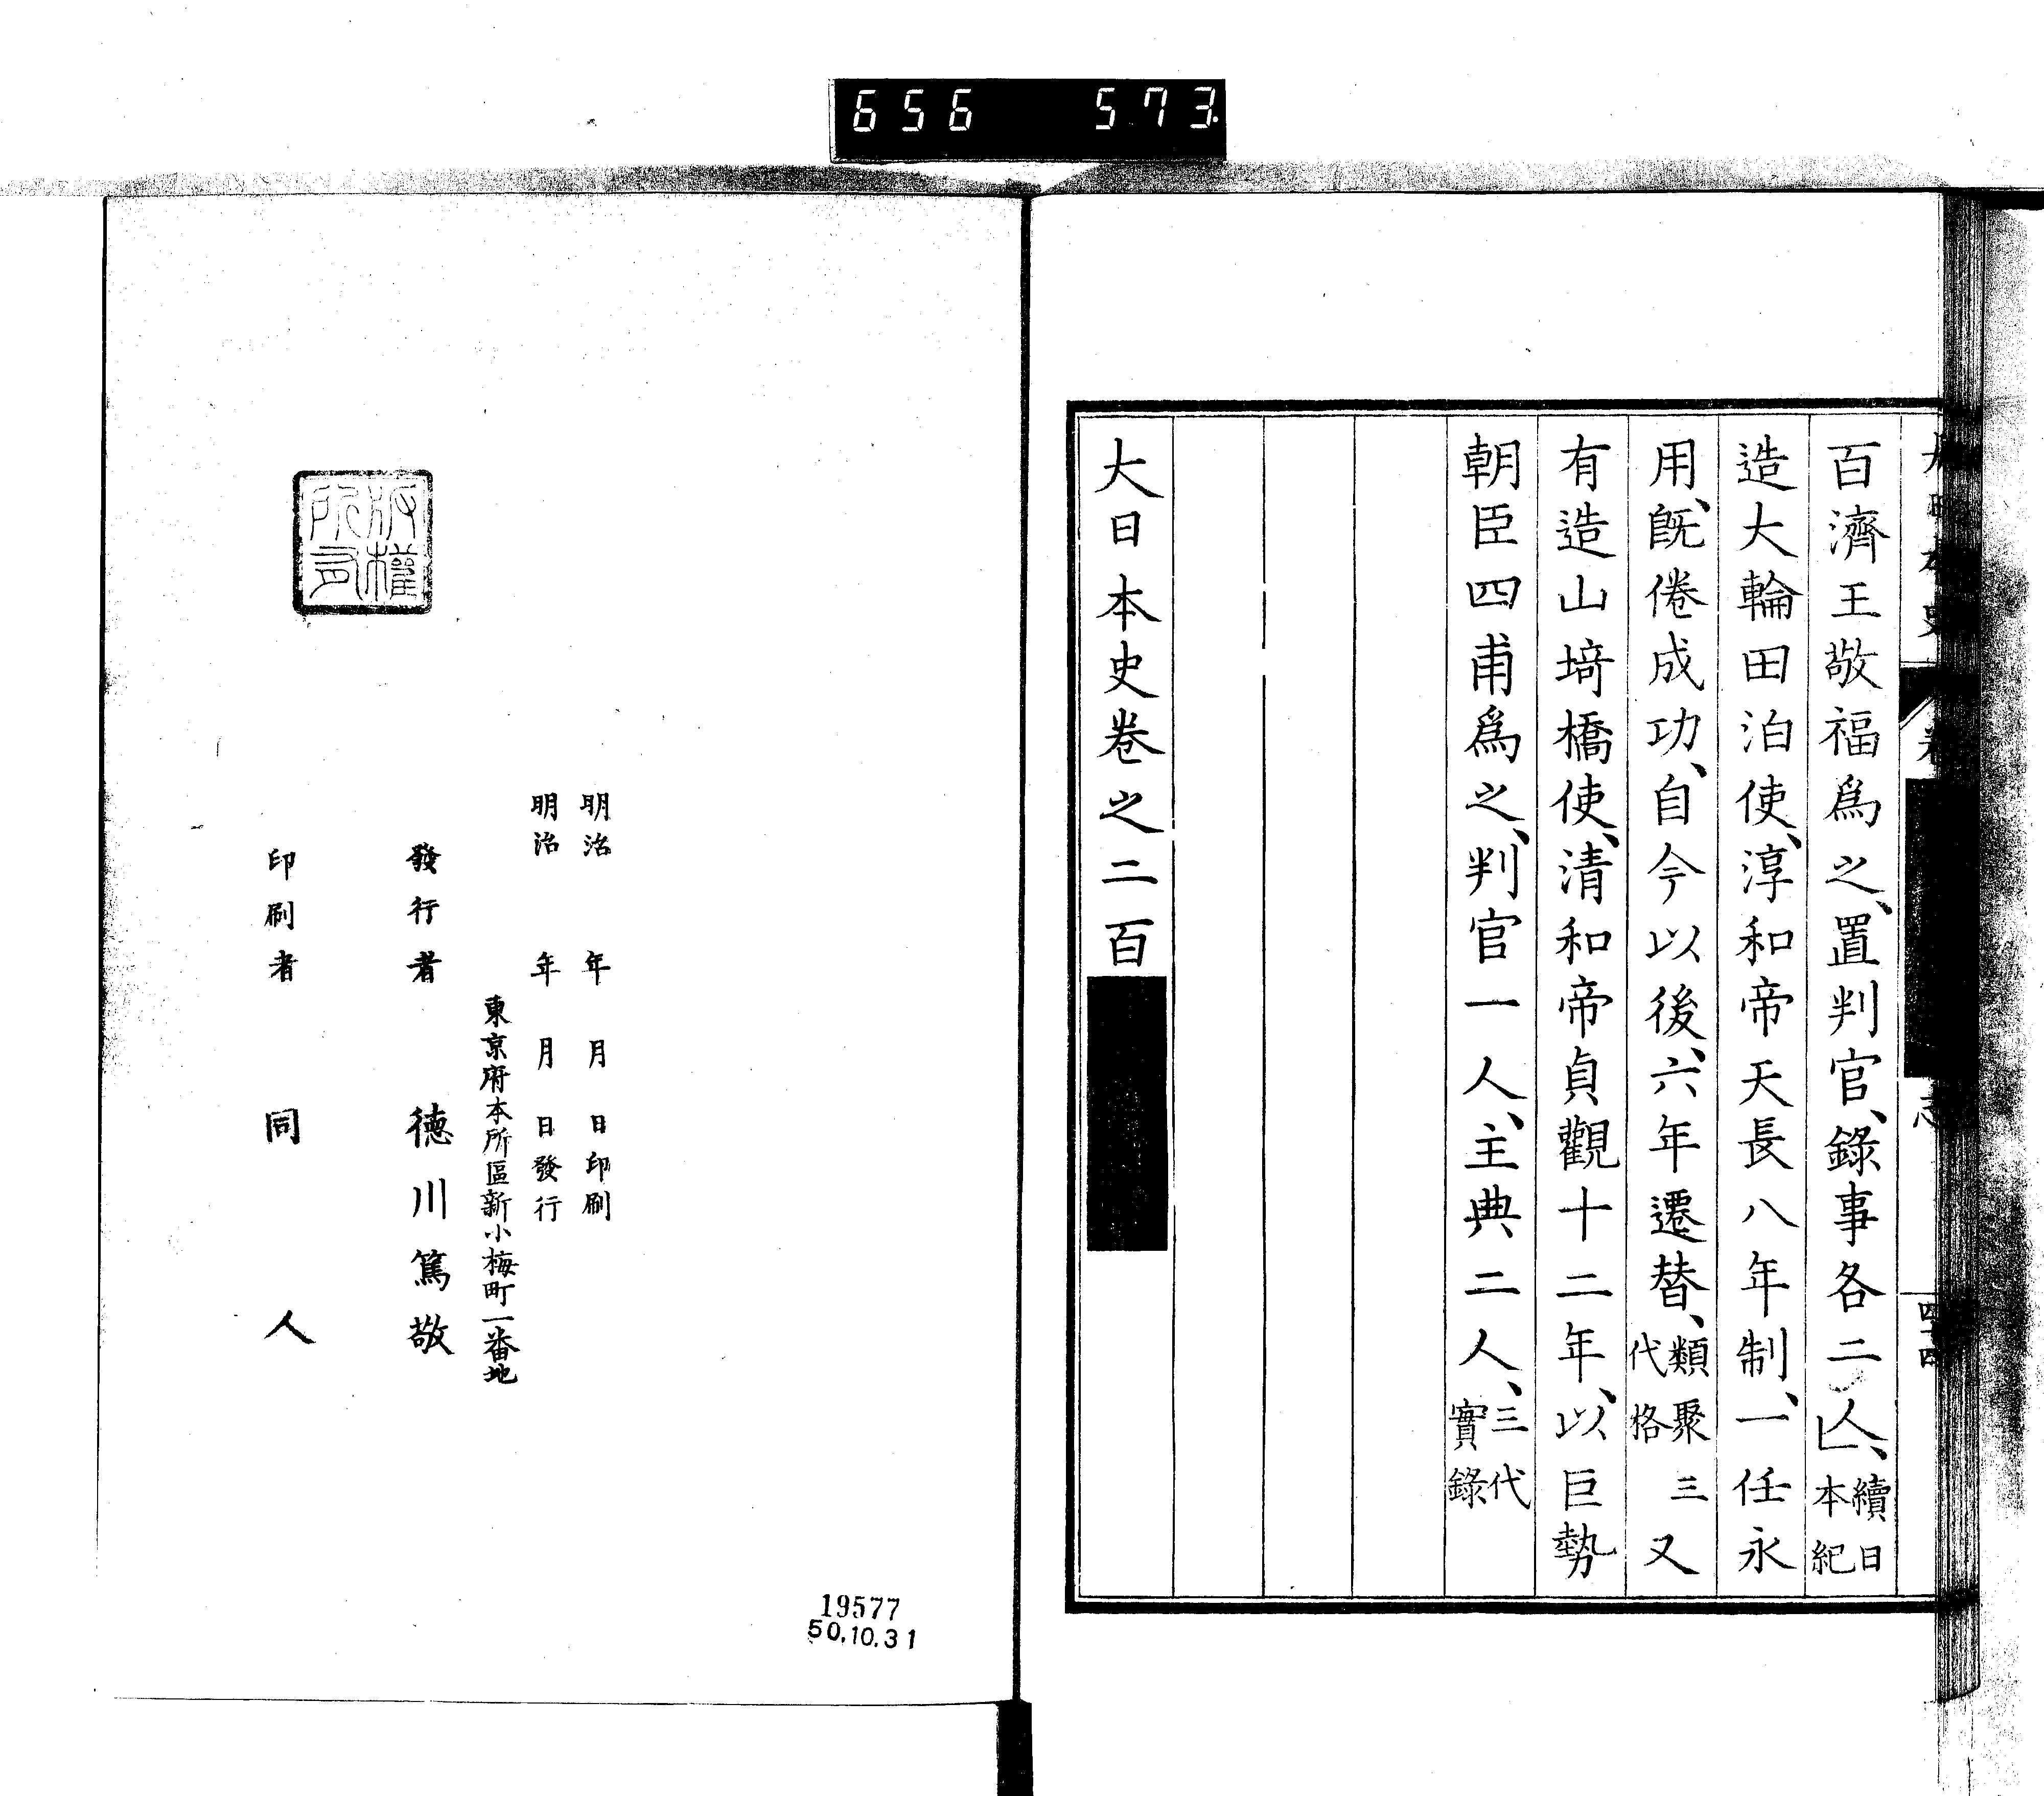 656 573.
百濟王敬福爲之、置判官、錄事各二人、續日本紀
造大輪田泊使、淳和帝天長八年制、一任永
用、既倦成功、自今以後、六年遷替、類聚三代格又
有造山埼橋使、清和帝貞觀十二年、以巨勢
朝臣四甫爲之、判官一人、主典二人、三代實錄
大日本史卷之二百
志
四十四
版權所有
明治 年 月 日印刷
明治 年 月 日發行
東京府本所區新小梅町一番地
發行者 德川篤敬
印刷者 同人
19577
50.10.31